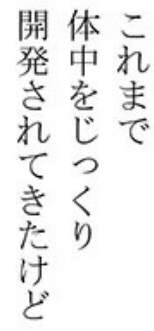 これまで
体中をじっくり
開発されてきたけど